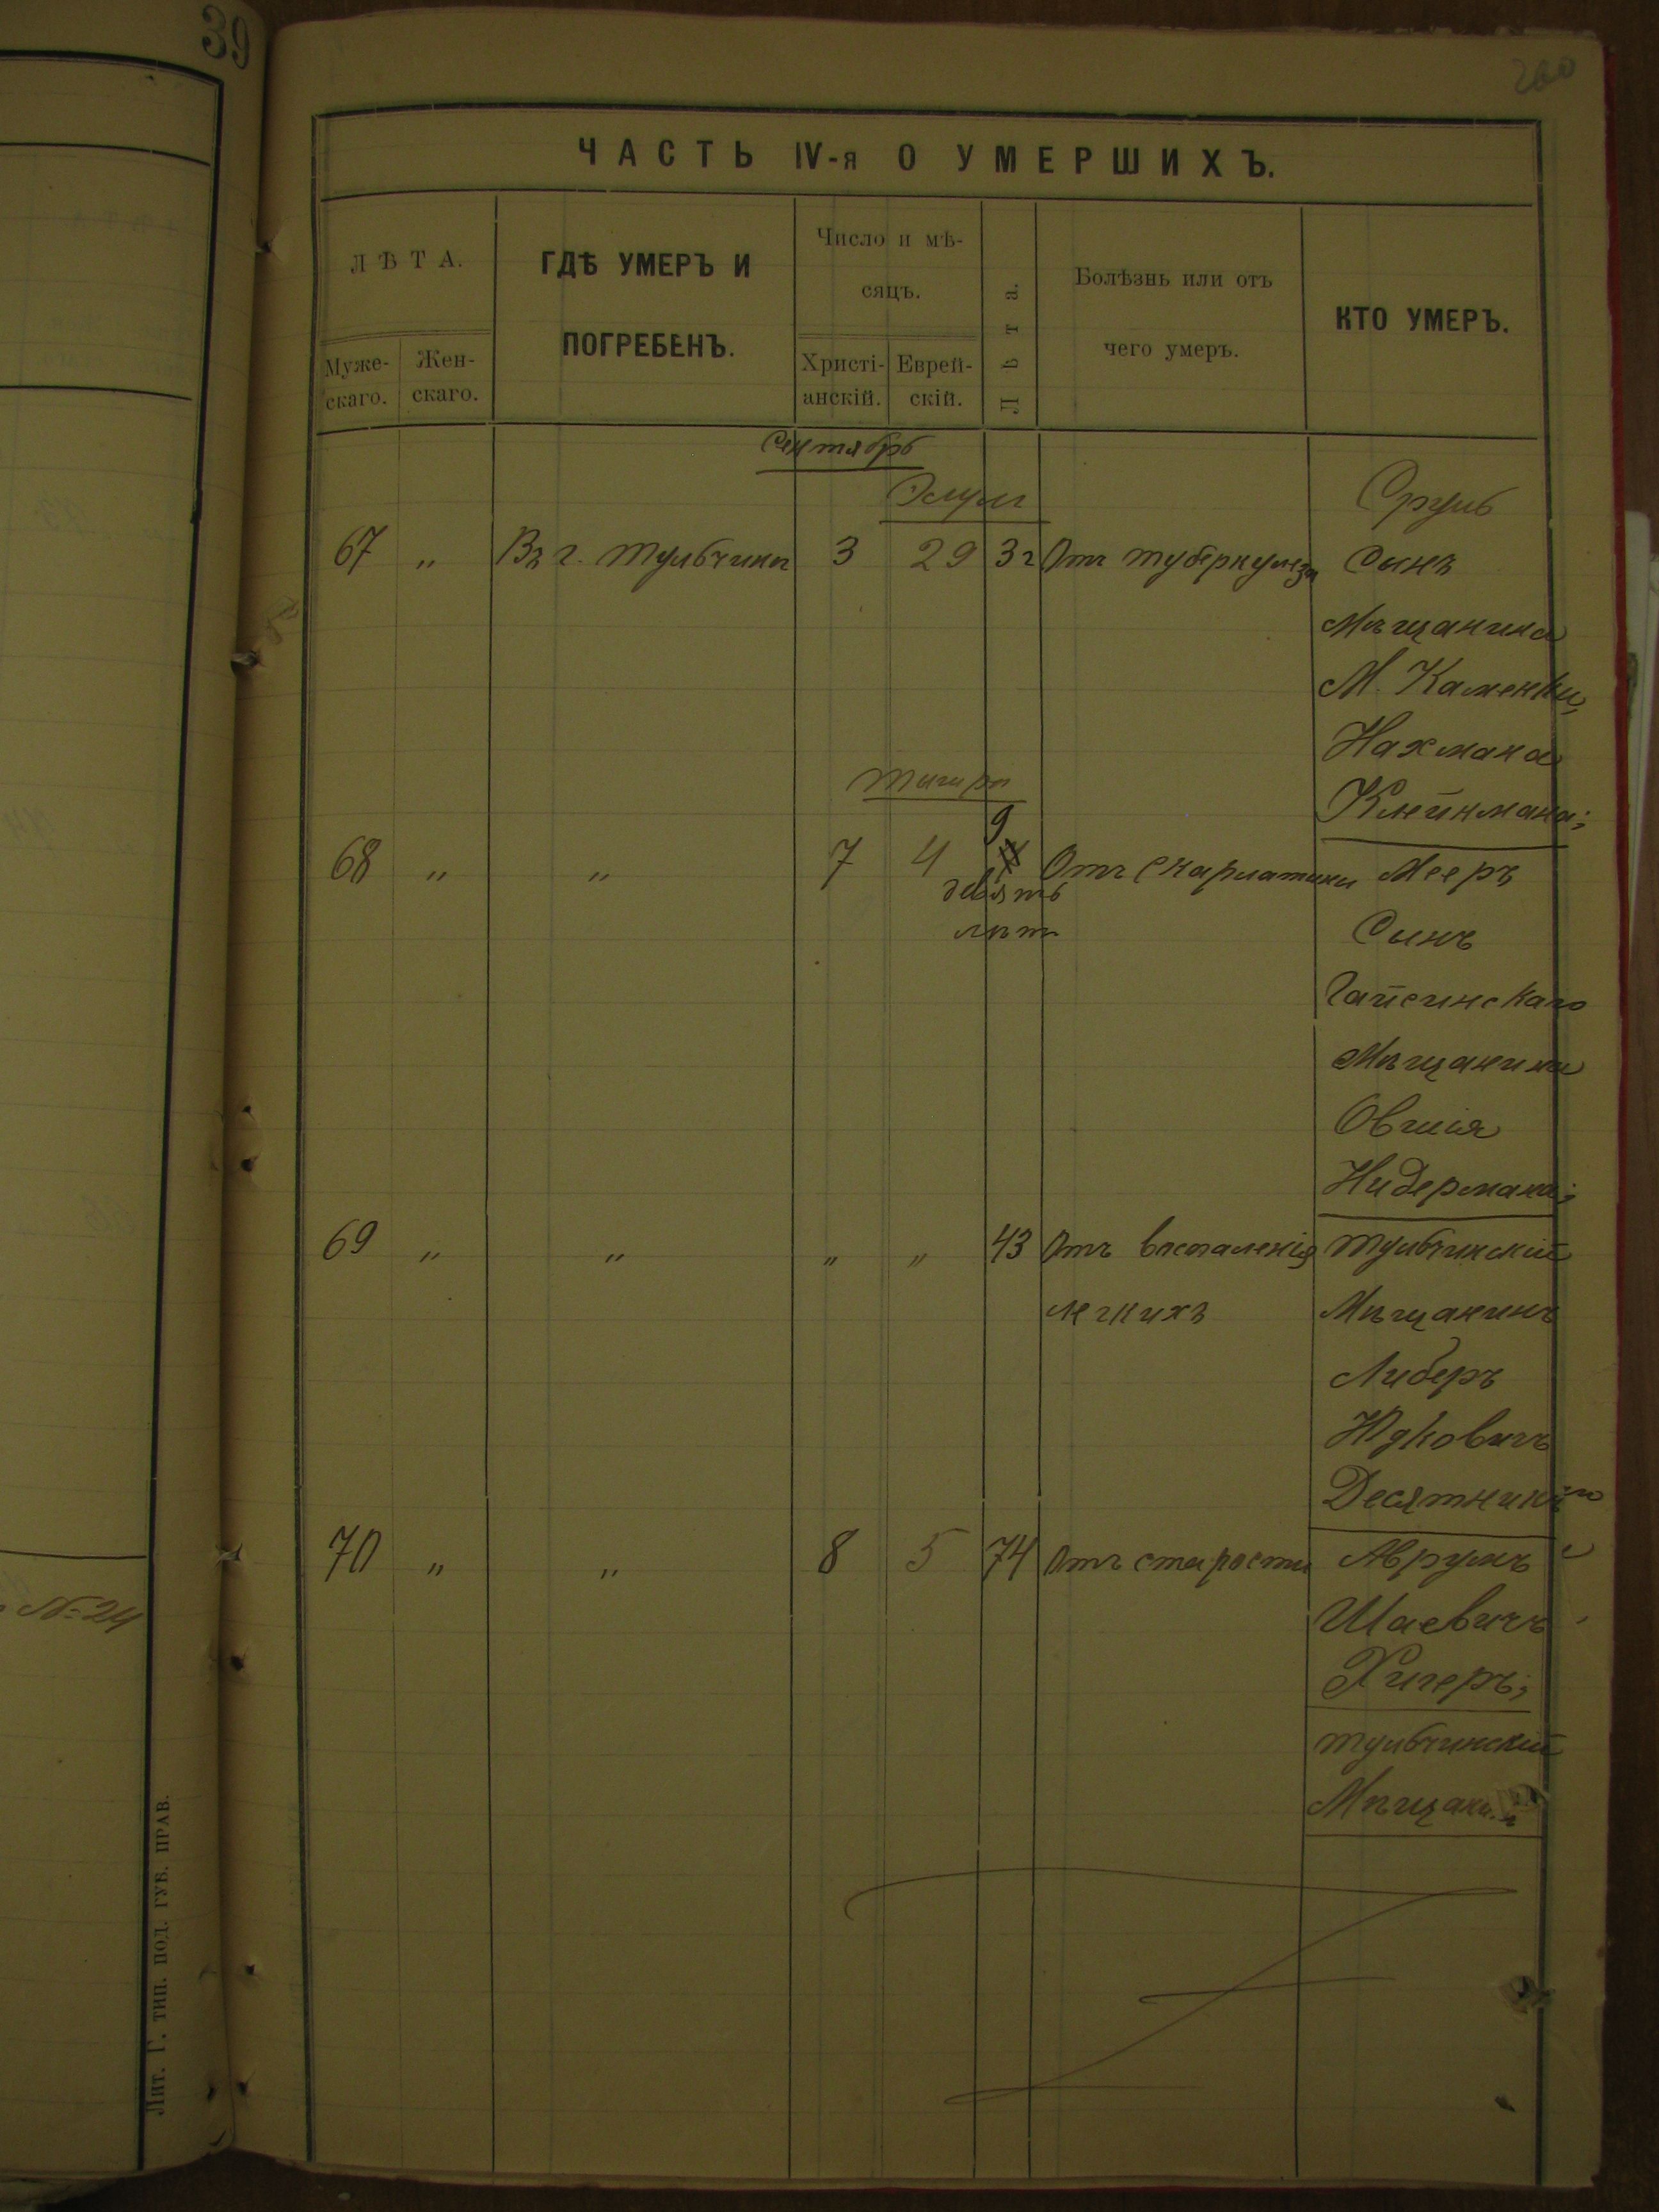 39
260
ЧАСТЬ IV-я О УМЕРШИХЪ.
ЛѢТА.
Муже-
скаго.
Жен-
скаго.
ГДѢ УМЕРЪ И
ПОГРЕБЕНЪ.
Число и мѣ-
сяцъ.
Христі-
анскій.
Еврей-
скій.
Лѣта.
Болѣзнь или отъ
чего умеръ.
КТО УМЕРЪ.
Сентябрь
Элулъ
Сруль
67 " Въ г. Тульчинѣ 3 29 3 г Отъ туберкулеза Сынъ
Мѣщанина
М. Каменки,
Нахмана
Клейнмана;
Тишри
9
68 " " 7 4 Отъ Скарлатины Мееръ
девять
лѣтъ
Сынъ
Гайсинскаго
Мѣщанина
Овшія
Нидермана;
69 " " " " 43 Отъ воспаленія Тульчинскій
легкихъ Мѣщанинъ
Либеръ
Юдковичъ
Десятникъ
70 " " 8 5 74 Отъ старости Аврумъ
Шаевичъ
Хигеръ;
Тульчинскій
№ 24
Лит. Г. тип. под. губ. прав.